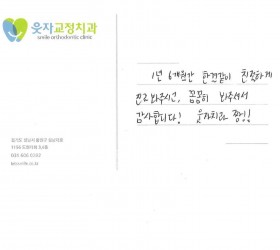 웃자교정치과
smile orthodontic clinic
1년 6개월간 한결같이 친절하게
진료봐주시고, 꼼꼼히 봐주셔서
감사합니다! 웃자치과 짱!!